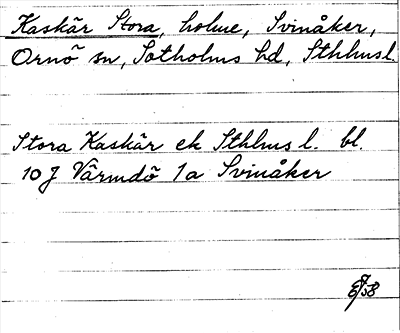 Kaskär Stora, holme, Svinåker,
Ornö sn, Sotholms hd, Sthlms l.
Stora Kaskär ek Sthlms l. bl.
10 J Värmdö 1a Svinåker
58